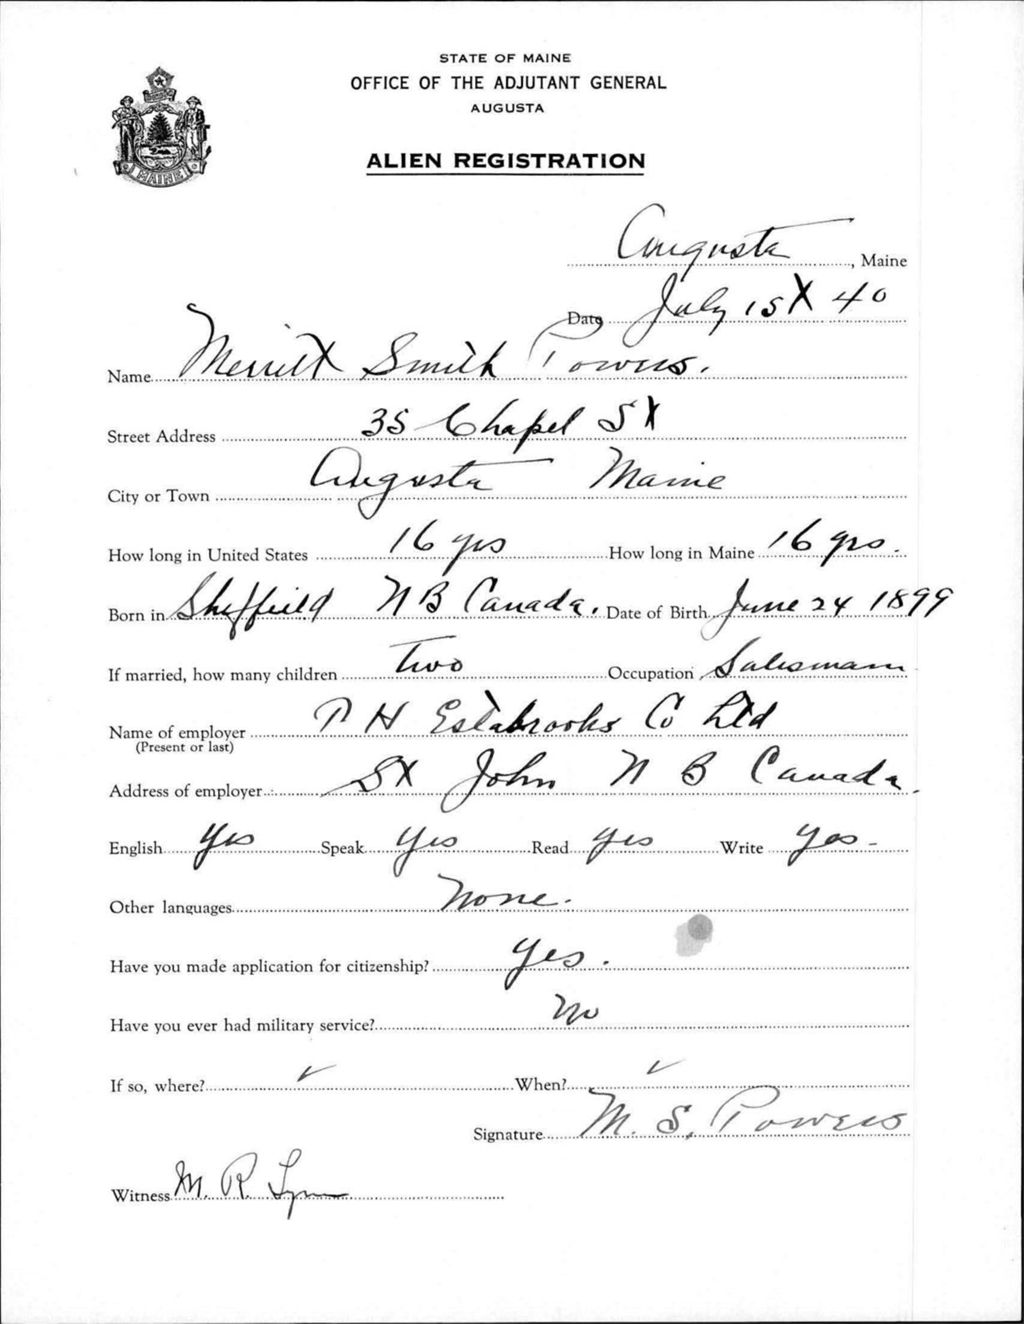 STATE OF MAINE
OFFICE OF THE ADJUTANT GENERAL
AUGUSTA
ALIEN REGISTRATION
MAINE
Augusta, Maine
Date July 15t 40
Name Merritt Smith Powers.
Street Address 35 Chapel St
City or Town Augusta Maine
How long in United States 16 yrs How long in Maine 16 yrs.
Born in Sheffield N B Canada. Date of Birth June 24 1899
If married, how many children Two Occupation Salesman
Name of employer T H Estabrooks Co Ltd
(Present or last)
Address of employer St John N B Canada.
English Yes Speak Yes Read Yes Write Yes -
Other languages None.
Have you made application for citizenship? Yes.
Have you ever had military service? No
If so, where? ✓ When? ✓
Signature M. S. Powers
Witness M. R.